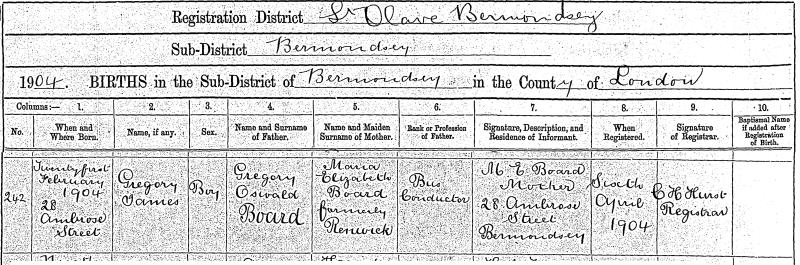 Registration District St Olave Bermondsey
Sub-District Bermondsey
1904. BIRTHS in the Sub-District of Bermondsey in the County of London
Columns:— 1. 2. 3. 4. 5. 6. 7. 8. 9. 10.
No. When and Where Born. Name, if any. Sex. Name and Surname of Father. Name and Maiden Surname of Mother. Rank or Profession of Father. Signature, Description, and Residence of Informant. When Registered. Signature of Registrar. Baptismal Name if added after Registration of Birth.
242
Twenty first
February
1904
28
Ambrose
Street
Gregory
James
Boy
Gregory
Oswald
Board
Maria
Elizabeth
Board
formerly
Renwick
Bus
Conductor
M E Board
Mother
28 Ambrose
Street
Bermondsey
Sixth
April
1904
C H Hurst
Registrar